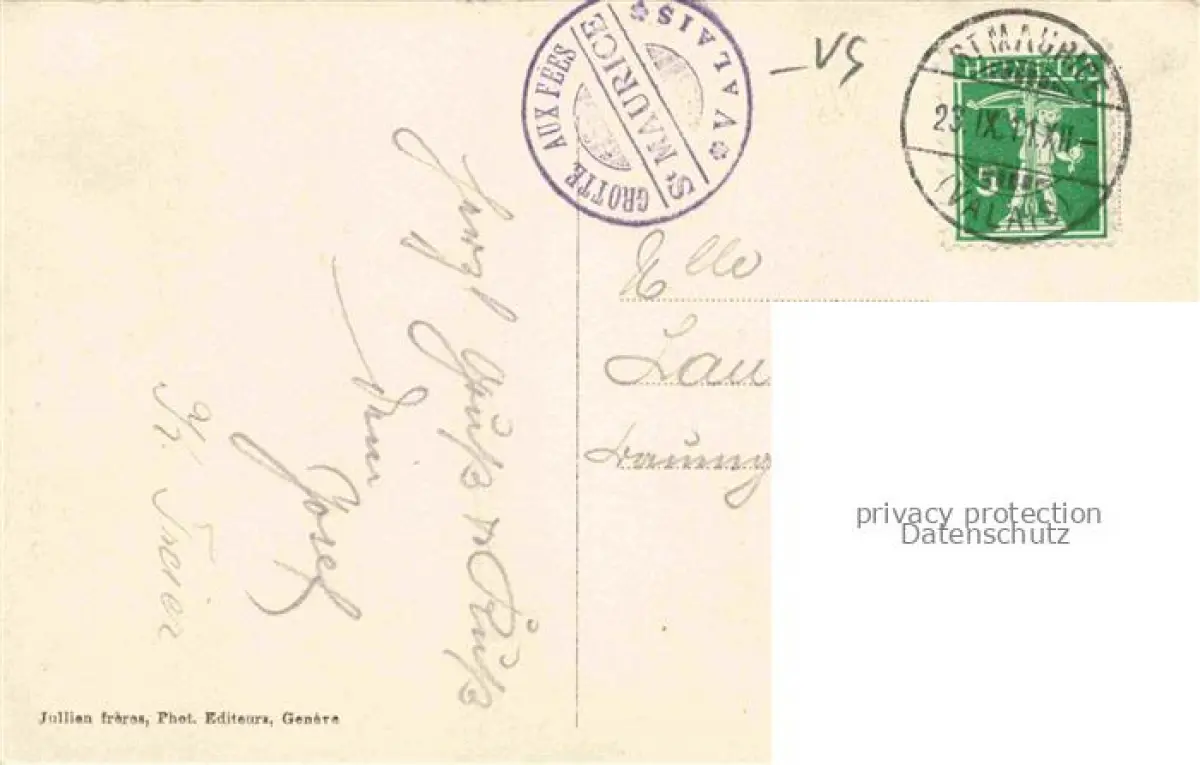 GROTTE AUX FEES
ST MAURICE
* VALAIS *
-VS
ST MAURICE
23. IX. 11. XII
(VALAIS)
HELVETIA
5
Mlle
Lau
Herzl Gruß & Kuß
Dein
Josef
Jullien frères, Phot. Editeurs, Genève
privacy protection
Datenschutz